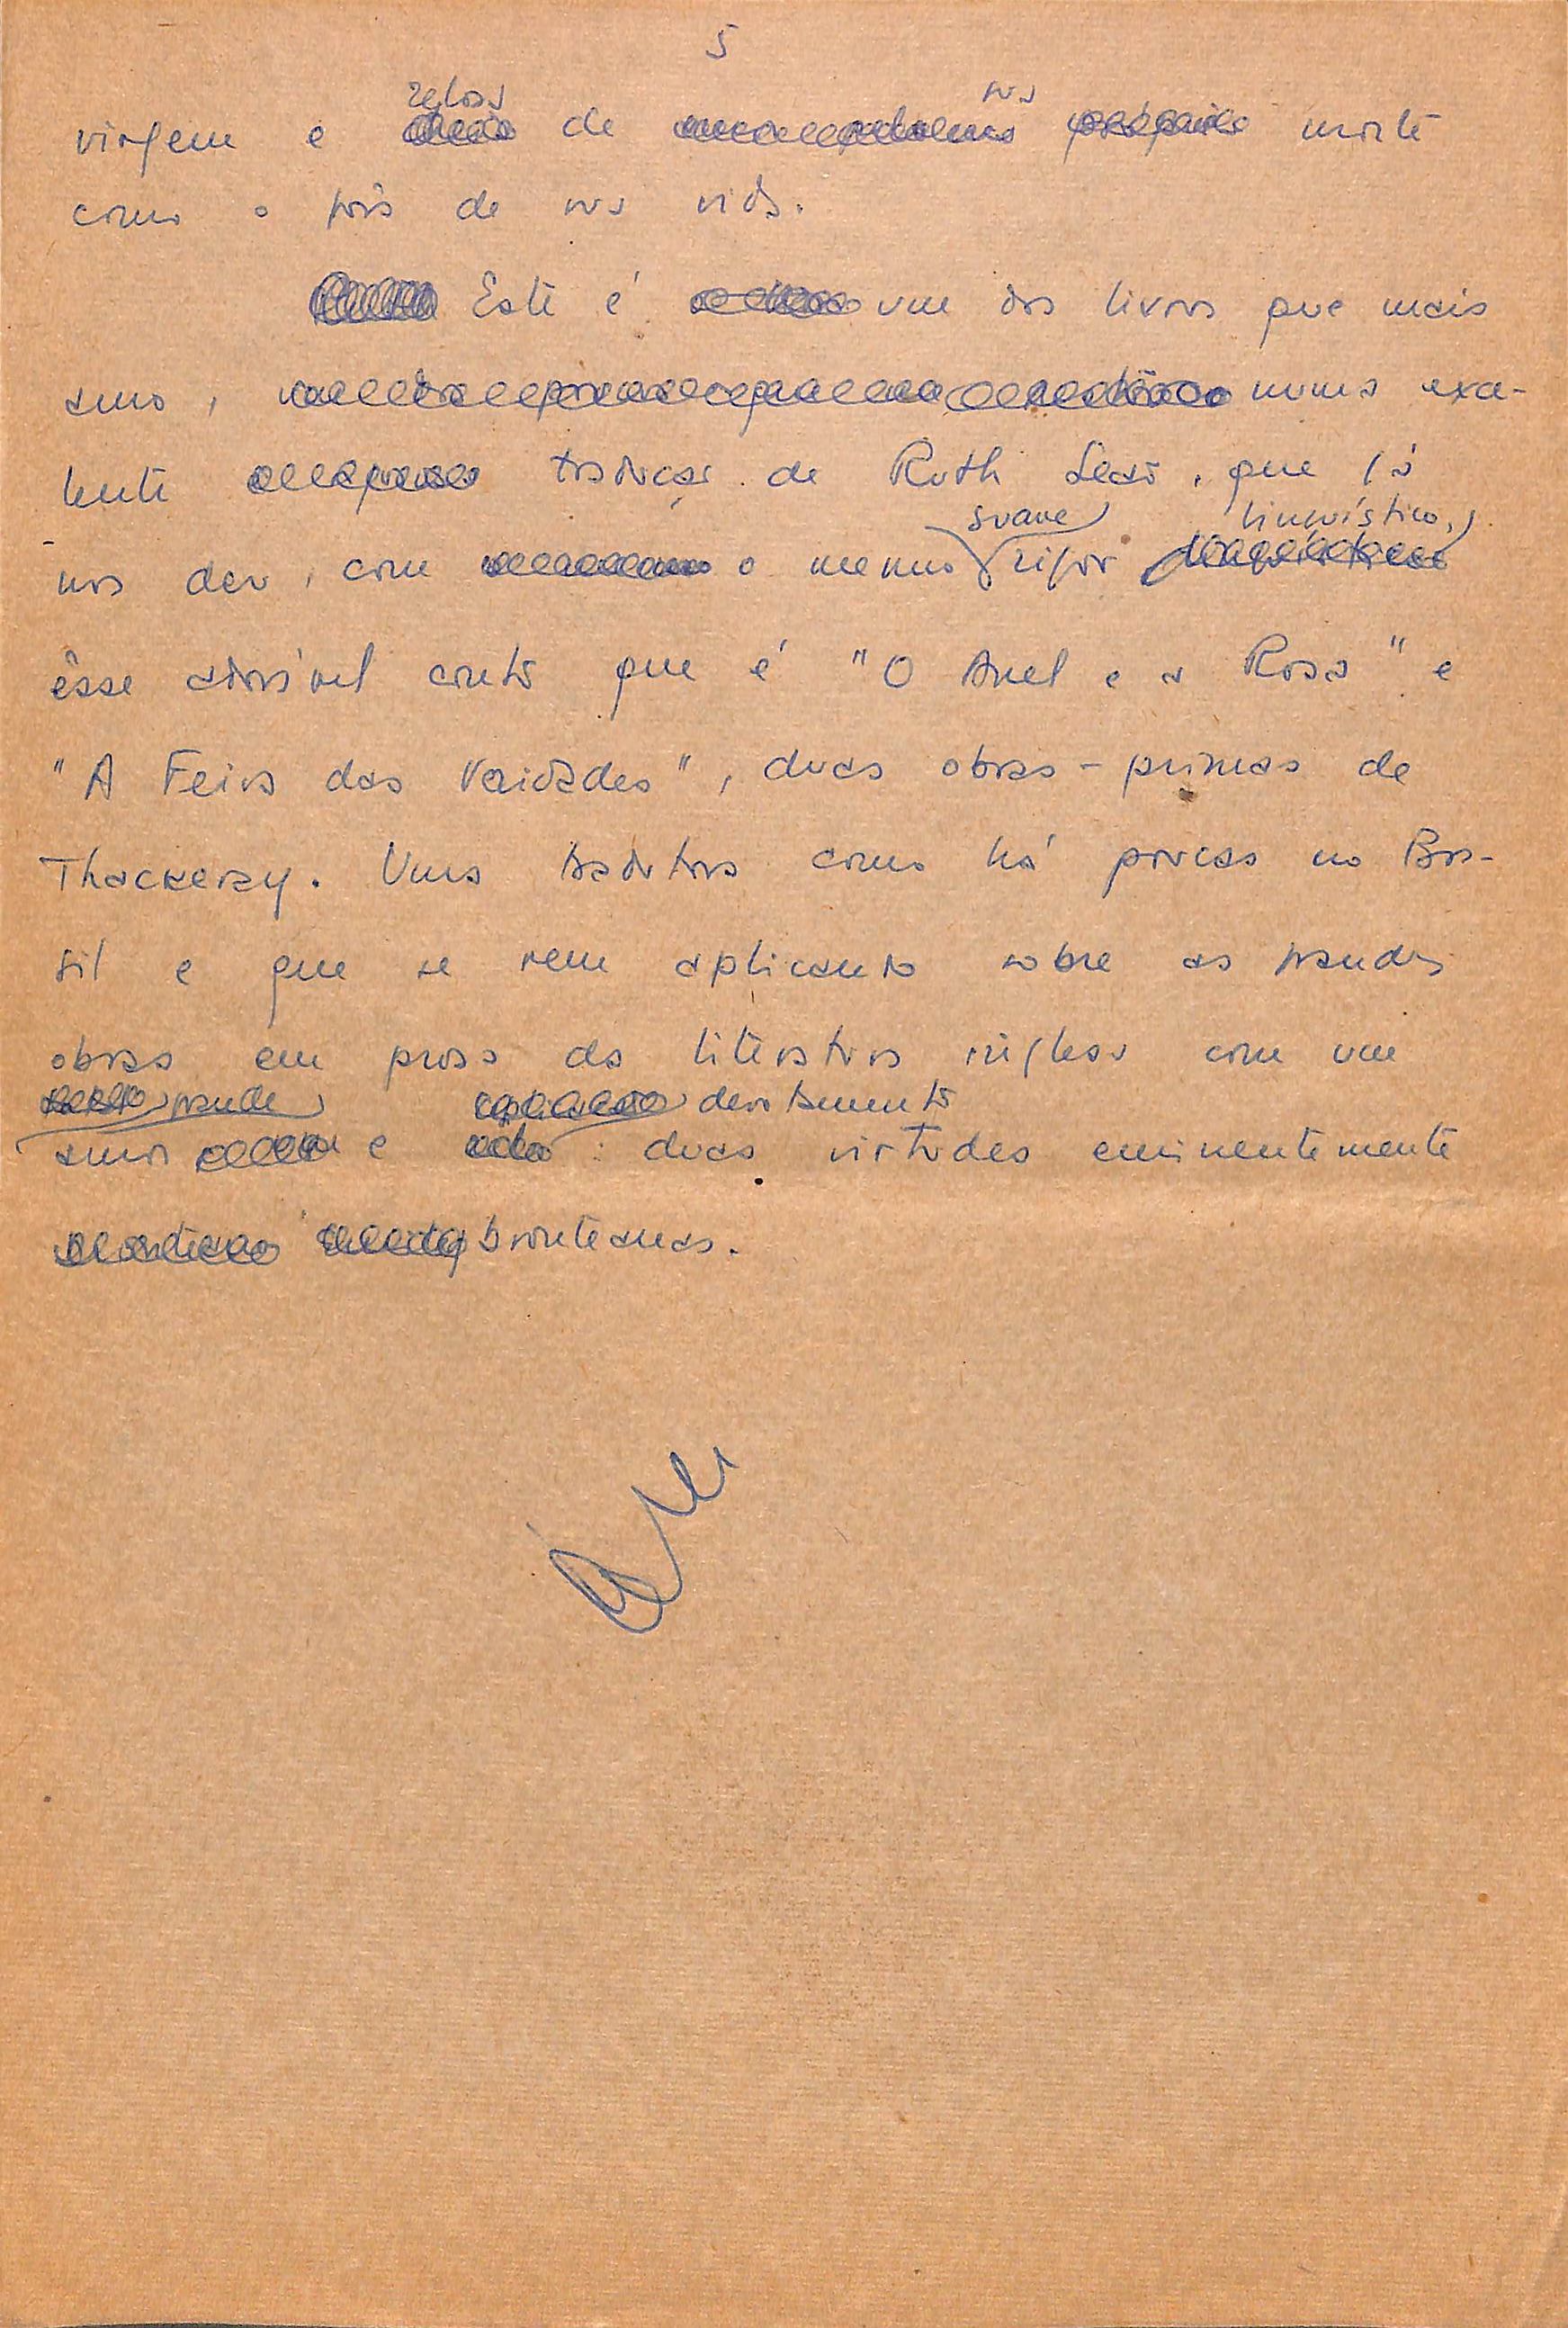 5
zelosa sua
virgem e de morte
como o pôs de sua vida.
Este é um dos livros que mais
amo, numa exce-
lente tradução de Ruth Leão, que já
suave linguístico,
nos deu, com o mesmo rigor
êsse adorável conto que é "O Anel e a Rosa" e
"A Feira das Vaidades", duas obras-primas de
Thackeray. Uma tradutora como há poucas no Bra-
sil e que se vem aplicando sobre as grandes
obras em prosa da literatura inglesa com um
grande devotamento
amor e : duas virtudes eminentemente
bronteanas.